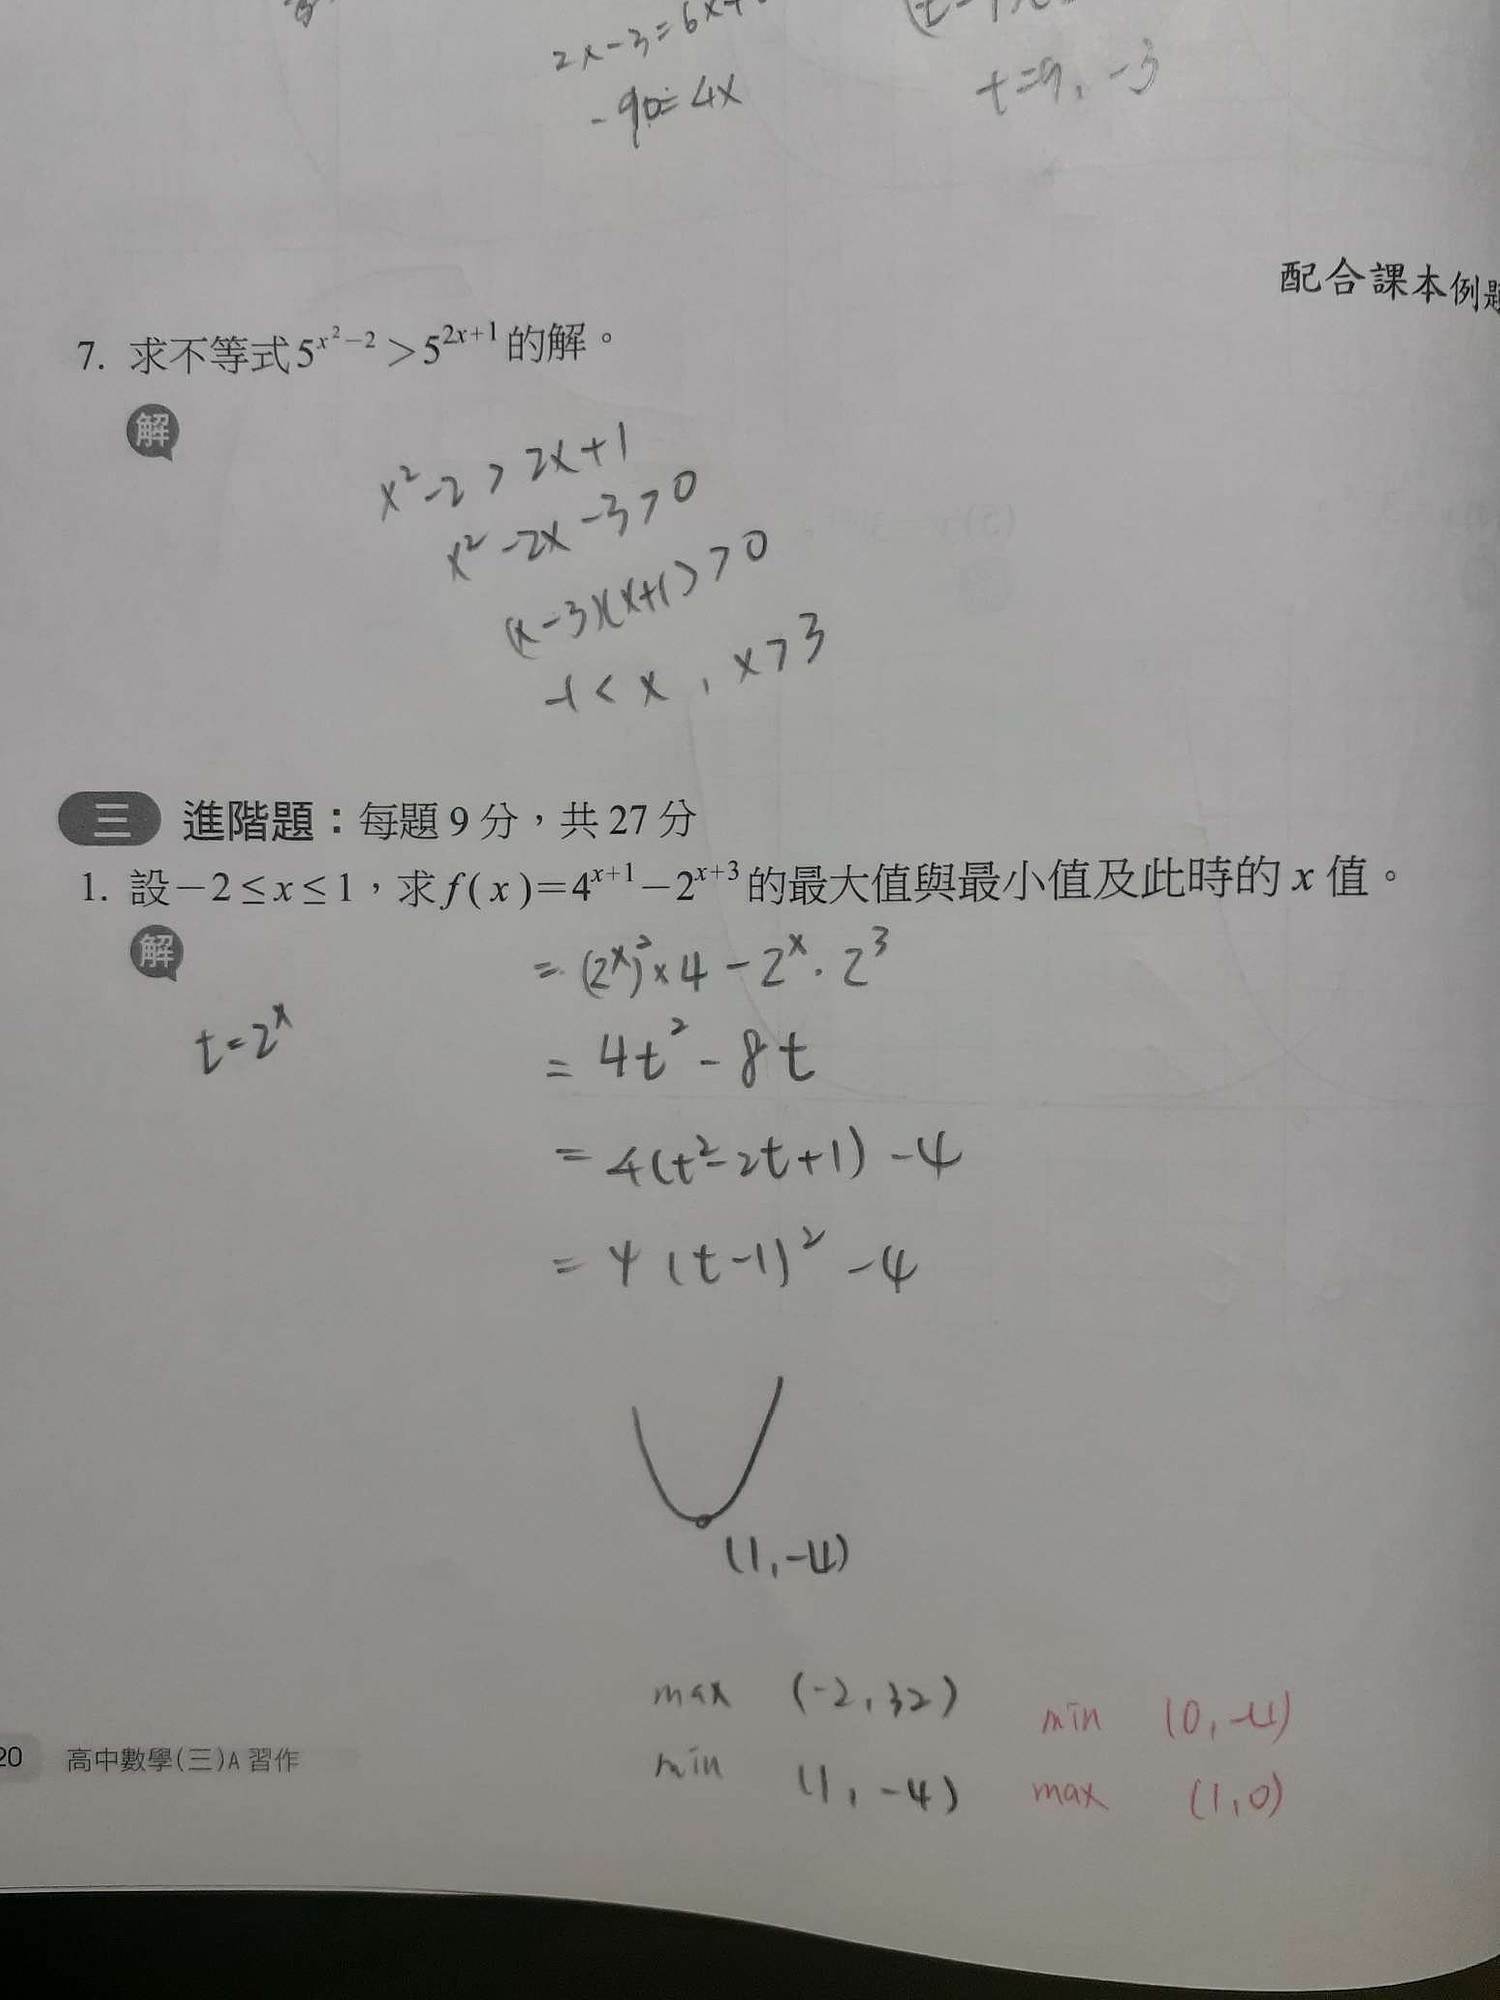 2x-3=6x+
t=9, -3
-90=4x
配合課本例題
7. 求不等式5^{x^2-2}>5^{2x+1}的解。
解
x^2-2>2x+1
x^2-2x-3>0
(x-3)(x+1)>0
-1<x, x>3
三 進階題：每題9分，共27分
1. 設-2≤x≤1，求f(x)=4^{x+1}-2^{x+3}的最大值與最小值及此時的x值。
解
=(2^x)^2×4-2^x·2^3
t=2^x
=4t^2-8t
=4(t^2-2t+1)-4
=4(t-1)^2-4
(1,-4)
max (-2,32) min (0,-4)
min (1,-4) max (1,0)
20 高中數學(三)A習作